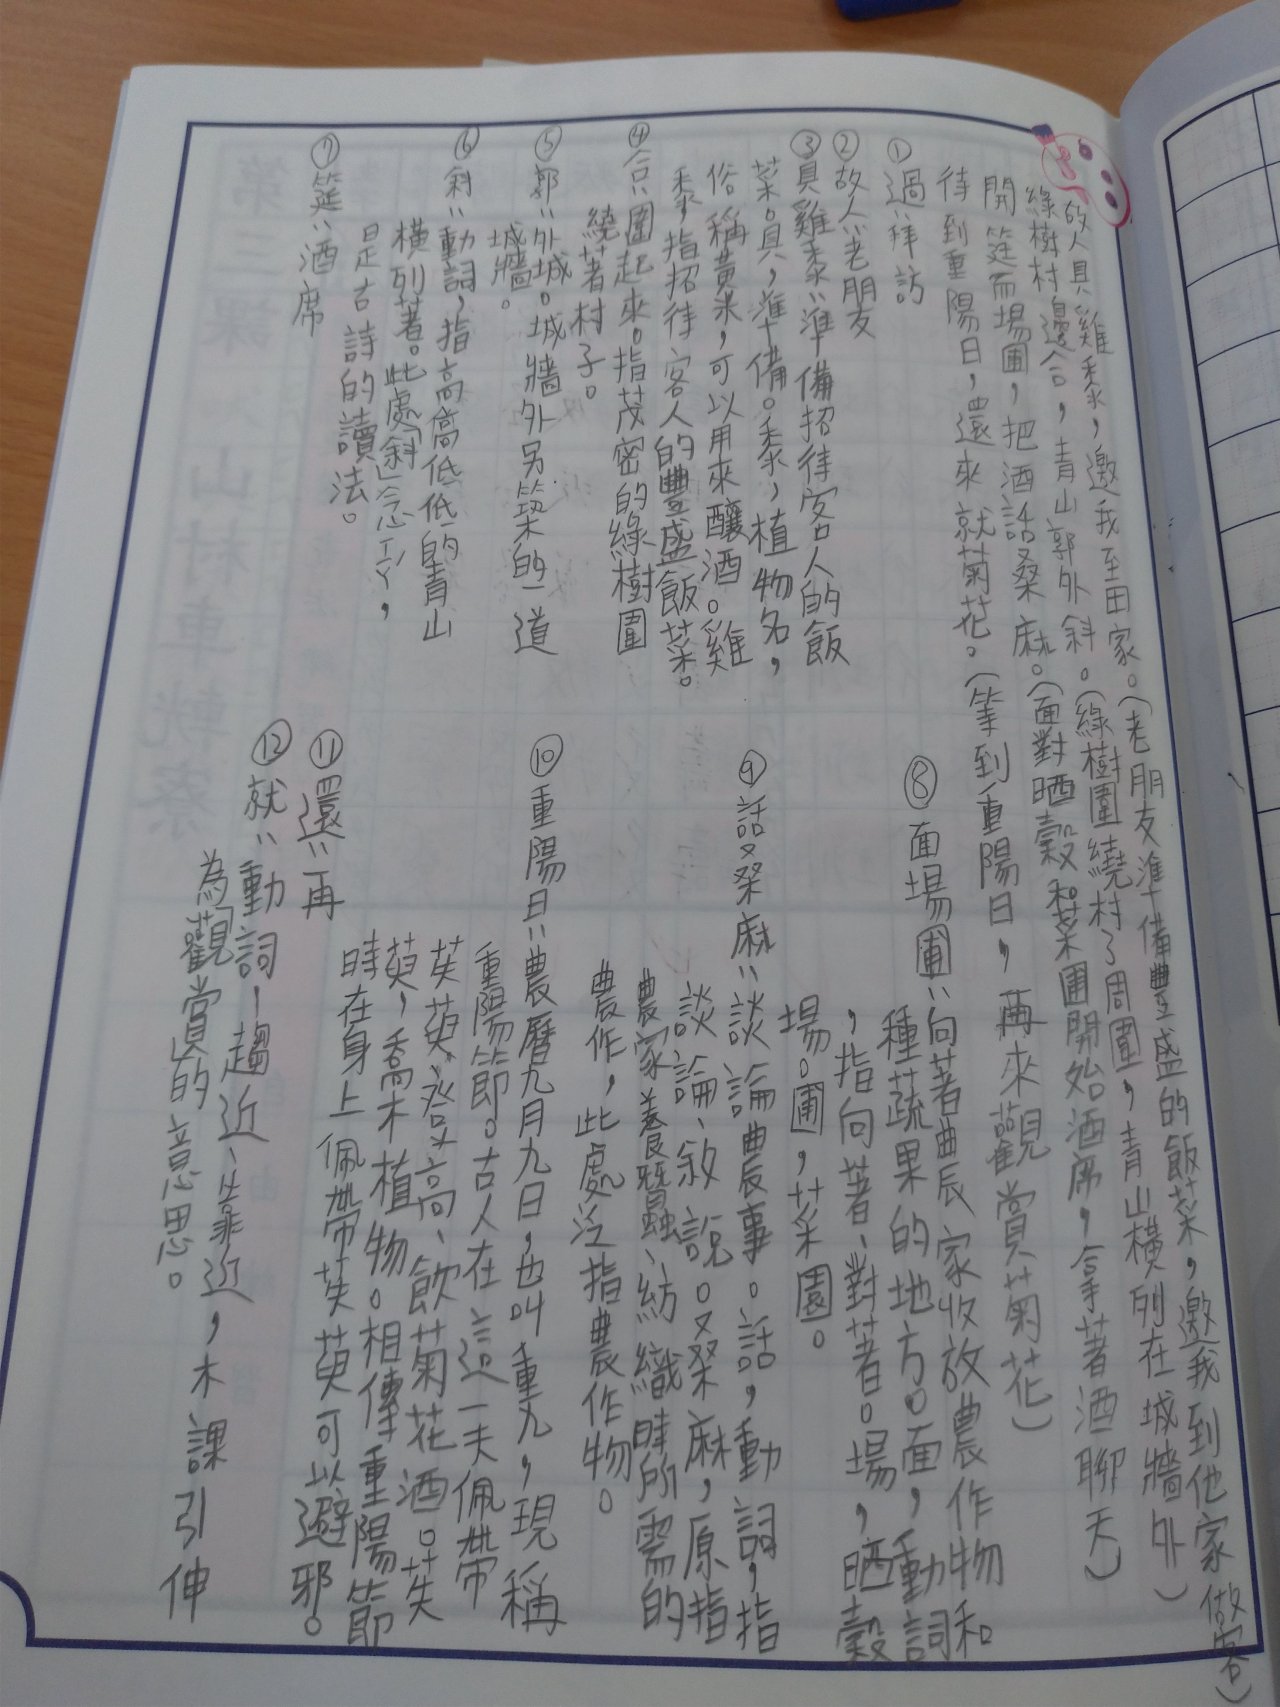 故人具雞黍，邀我至田家。(老朋友準備豐盛的飯菜，邀我到他家做客)
綠樹村邊合，青山郭外斜。(綠樹圍繞村了周圍，青山橫列在城牆外)
開筵面場圃，把酒話桑麻。(面對晒穀和菜圃開始酒席，拿著酒聊天)
待到重陽日，還來就菊花。(等到重陽日，再來觀賞菊花)
①過:拜訪
②故人:老朋友
③具雞黍:準備招待客人的飯
菜。具，準備。黍，植物名，
俗稱黃米，可以用來釀酒。雞
黍，指招待客人的豐盛飯菜。
④合:圍起來。指茂密的綠樹圍
繞著村子。
⑤郭:外城。城牆外另築的一道
城牆。
⑥斜:動詞，指高高低低的青山
橫列著。此處「斜」念ㄒㄧㄚˊ，
是古詩的讀法。
⑦筵:酒席
⑧面場圃:向著農家收放農作物和
種蔬果的地方。面，動詞
，指向著、對著。場，晒穀
場。圃，菜園。
⑨話桑麻:談論農事。話，動詞，指
談論、敘說。桑麻，原指
農家養蠶、紡織時所需的
農作，此處泛指農作物。
⑩重陽日:農曆九月九日，也叫重九，現稱
重陽節。古人在這一天佩帶
茱萸、登高、飲菊花酒。茱
萸，喬木植物。相傳重陽節
時在身上佩帶茱萸可以避邪。
⑪還:再
⑫就:動詞，趨近、靠近，本課引伸
為觀賞的意思。